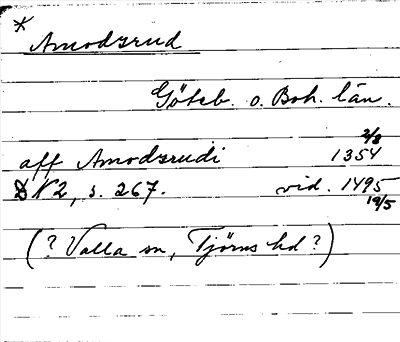 *
Amodzrud
Göteb. o. Boh. län.
2/8
aff Amodzrudi 1354
DN 2, s. 267. vid. 1495
19/5
(? Valla sn, Tjörns hd?)